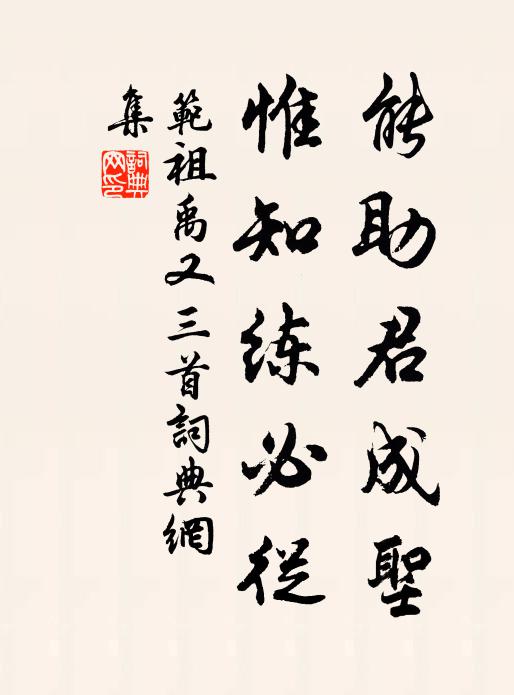 能助君成聖
惟知練必從
範祖禹又三首詞典網
集
詞典
网印